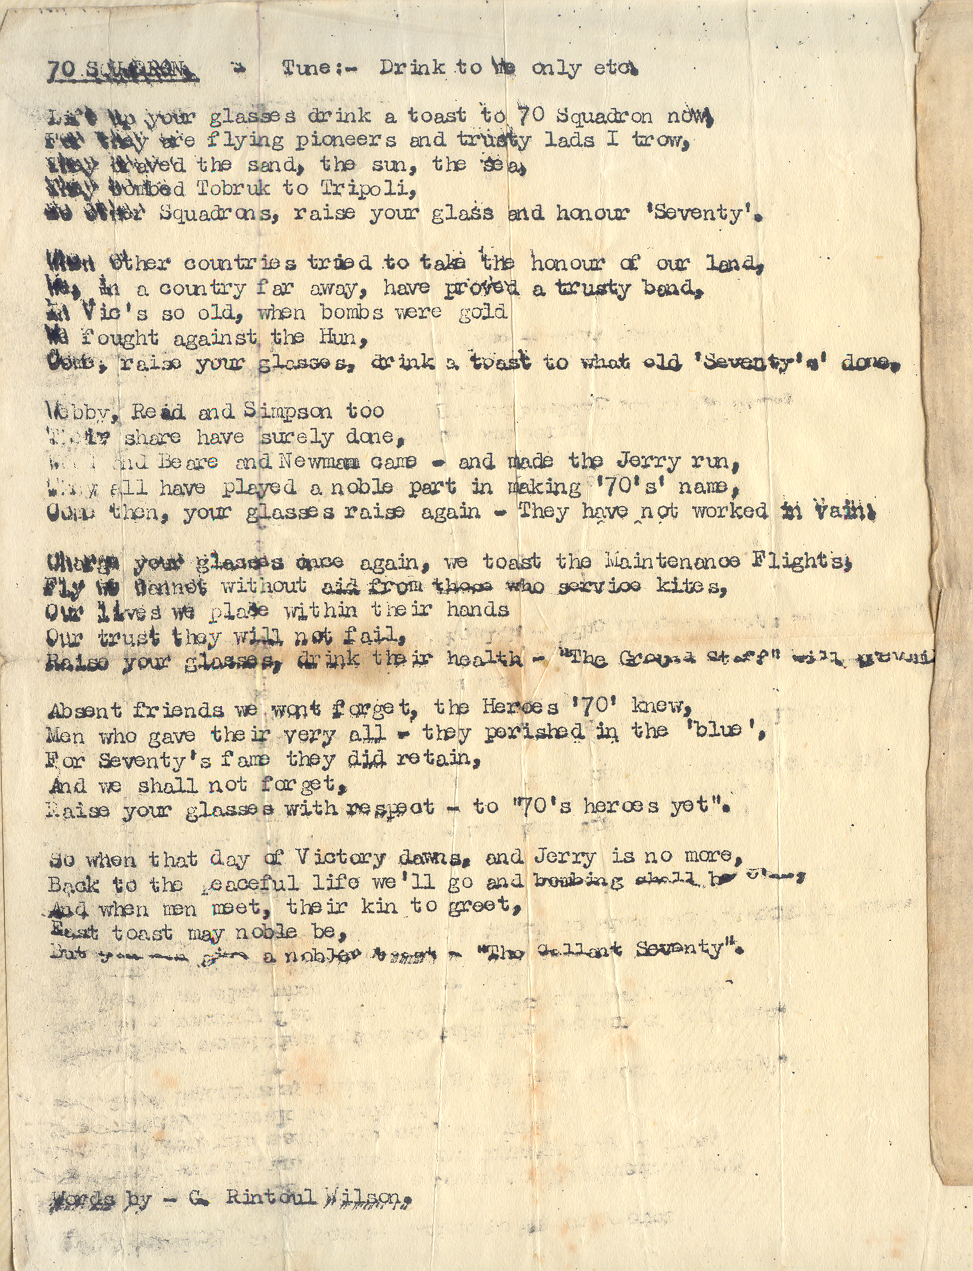 70 SQUADRON. - Tune:- Drink to Me only etc.
Lift up your glasses drink a toast to 70 Squadron now,
For they are flying pioneers and trusty lads I trow,
They braved the sand, the sun, the sea,
They bombed Tobruk to Tripoli,
So other Squadrons, raise your glass and honour 'Seventy'.
When other countries tried to take the honour of our land,
We, in a country far away, have proved a trusty band,
In Vic's so old, when bombs were gold
We fought against the Hun,
Come, raise your glasses, drink a toast to what old 'Seventy's' done.
Webby, Read and Simpson too
Their share have surely done,
and Beare and Newman came - and made the Jerry run,
They all have played a noble part in making '70's' name,
Come then, your glasses raise again - They have not worked in Vain.
Charge your glasses once again, we toast the Maintenance Flights,
Fly we Cannot without aid from those who service kites,
Our lives we place within their hands
Our trust they will not fail,
Raise your glasses, drink their health - "The Ground Staff" will prevail
Absent friends we wont forget, the Heroes '70' knew,
Men who gave their very all - they perished in the 'blue',
For Seventy's fame they did retain,
And we shall not forget,
Raise your glasses with respect - to "70's heroes yet".
So when that day of Victory dawns, and Jerry is no more,
Back to the peaceful life we'll go and bombing shall be
And when men meet, their kin to greet,
toast may noble be,
But you can give a nobler toast - "The Gallant Seventy".
Words by - G. Rintoul Wilson.